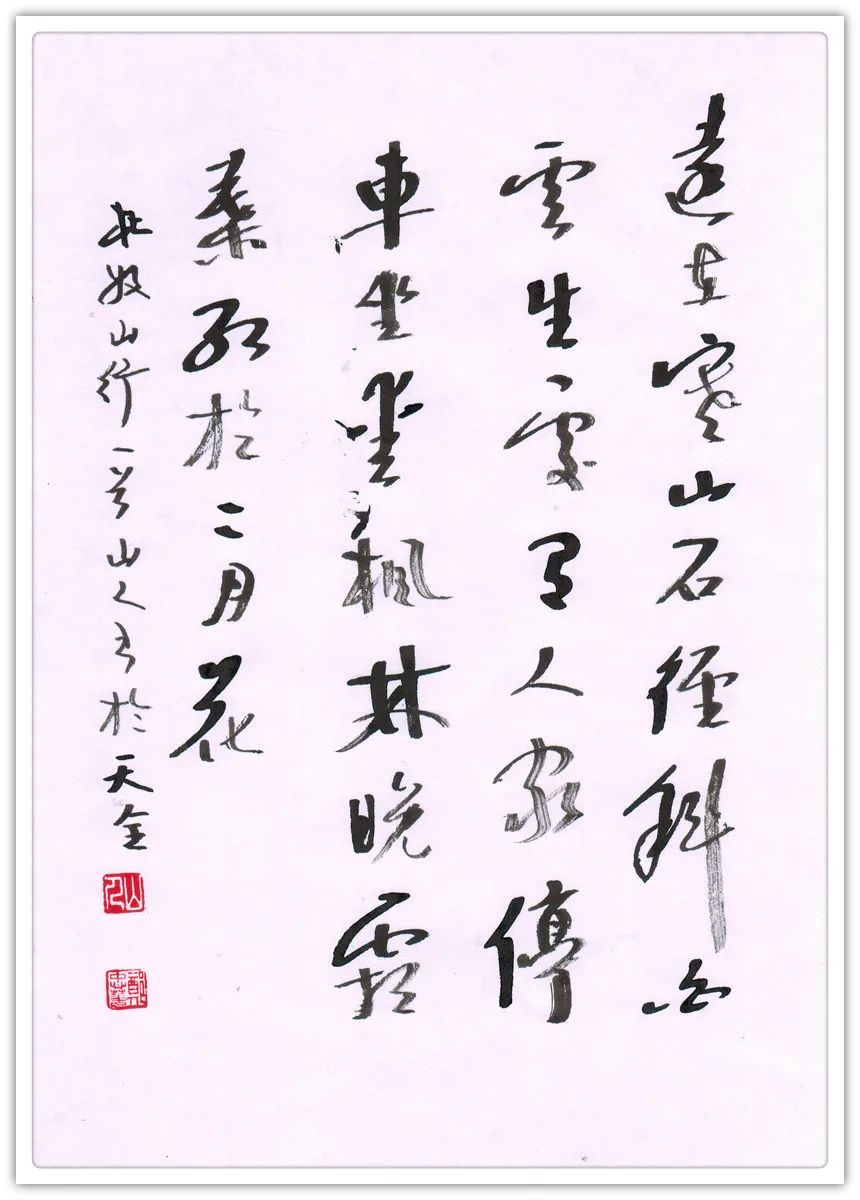 遠寒山石徑斜白
雲生處有人家停
車坐坐楓林晚霜
葉紅於二月花
杜牧山行一山人書於天全
山人